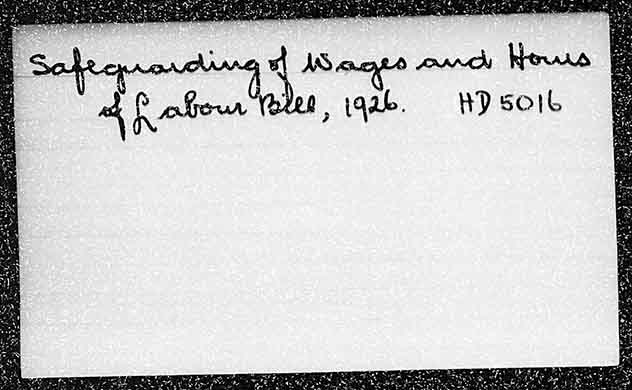 Safeguarding of Wages and Hours
of Labour Bill, 1926. HD 5016